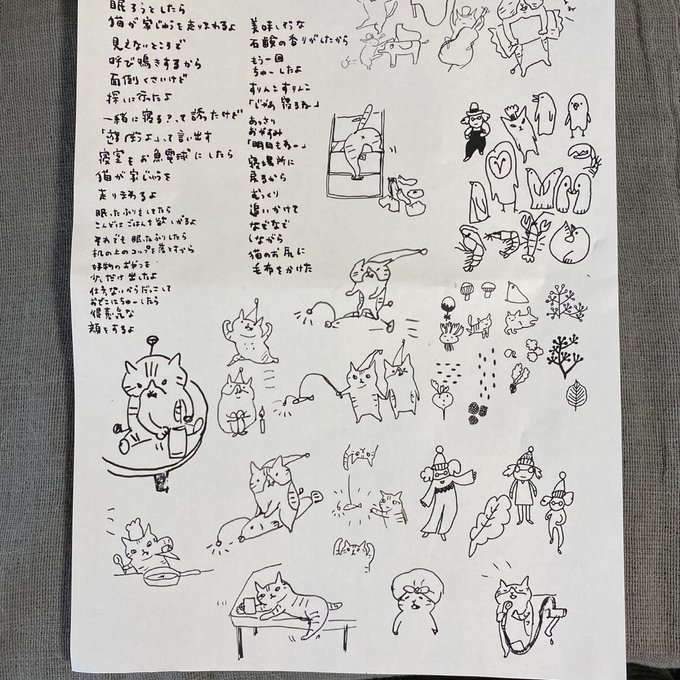 眠ろうとしたら
猫が家じゅうを走りまわるよ
見えないところで
呼び鳴きするから
面倒くさいけど
探しに行ったよ
一緒に寝る？って誘ったけど
「遊ぼうよ」って言い出す
寝室をお魚電球にしたら
猫が家じゅうを
走りまわるよ
眠ったふりをしてたら
こんどはごはんを欲しがるよ
それでも眠ったふりしたら
机の上のコップを落とすから
好物のおやつを
少しだけ出したよ
仕方ないからだっこして
おでこにちゅーしたら
得意気な
顔をするよ
美味しそうな
石鹸の香りがしたから
もう一回
ちゅーしたよ
すりんこすりんこ
「じゃあ寝るね」
あっさり
おやすみ
「明日もねー」
寝る場所に
戻るから
むっくり
追いかけて
なでなで
しながら
猫のお尻に
毛布をかけた